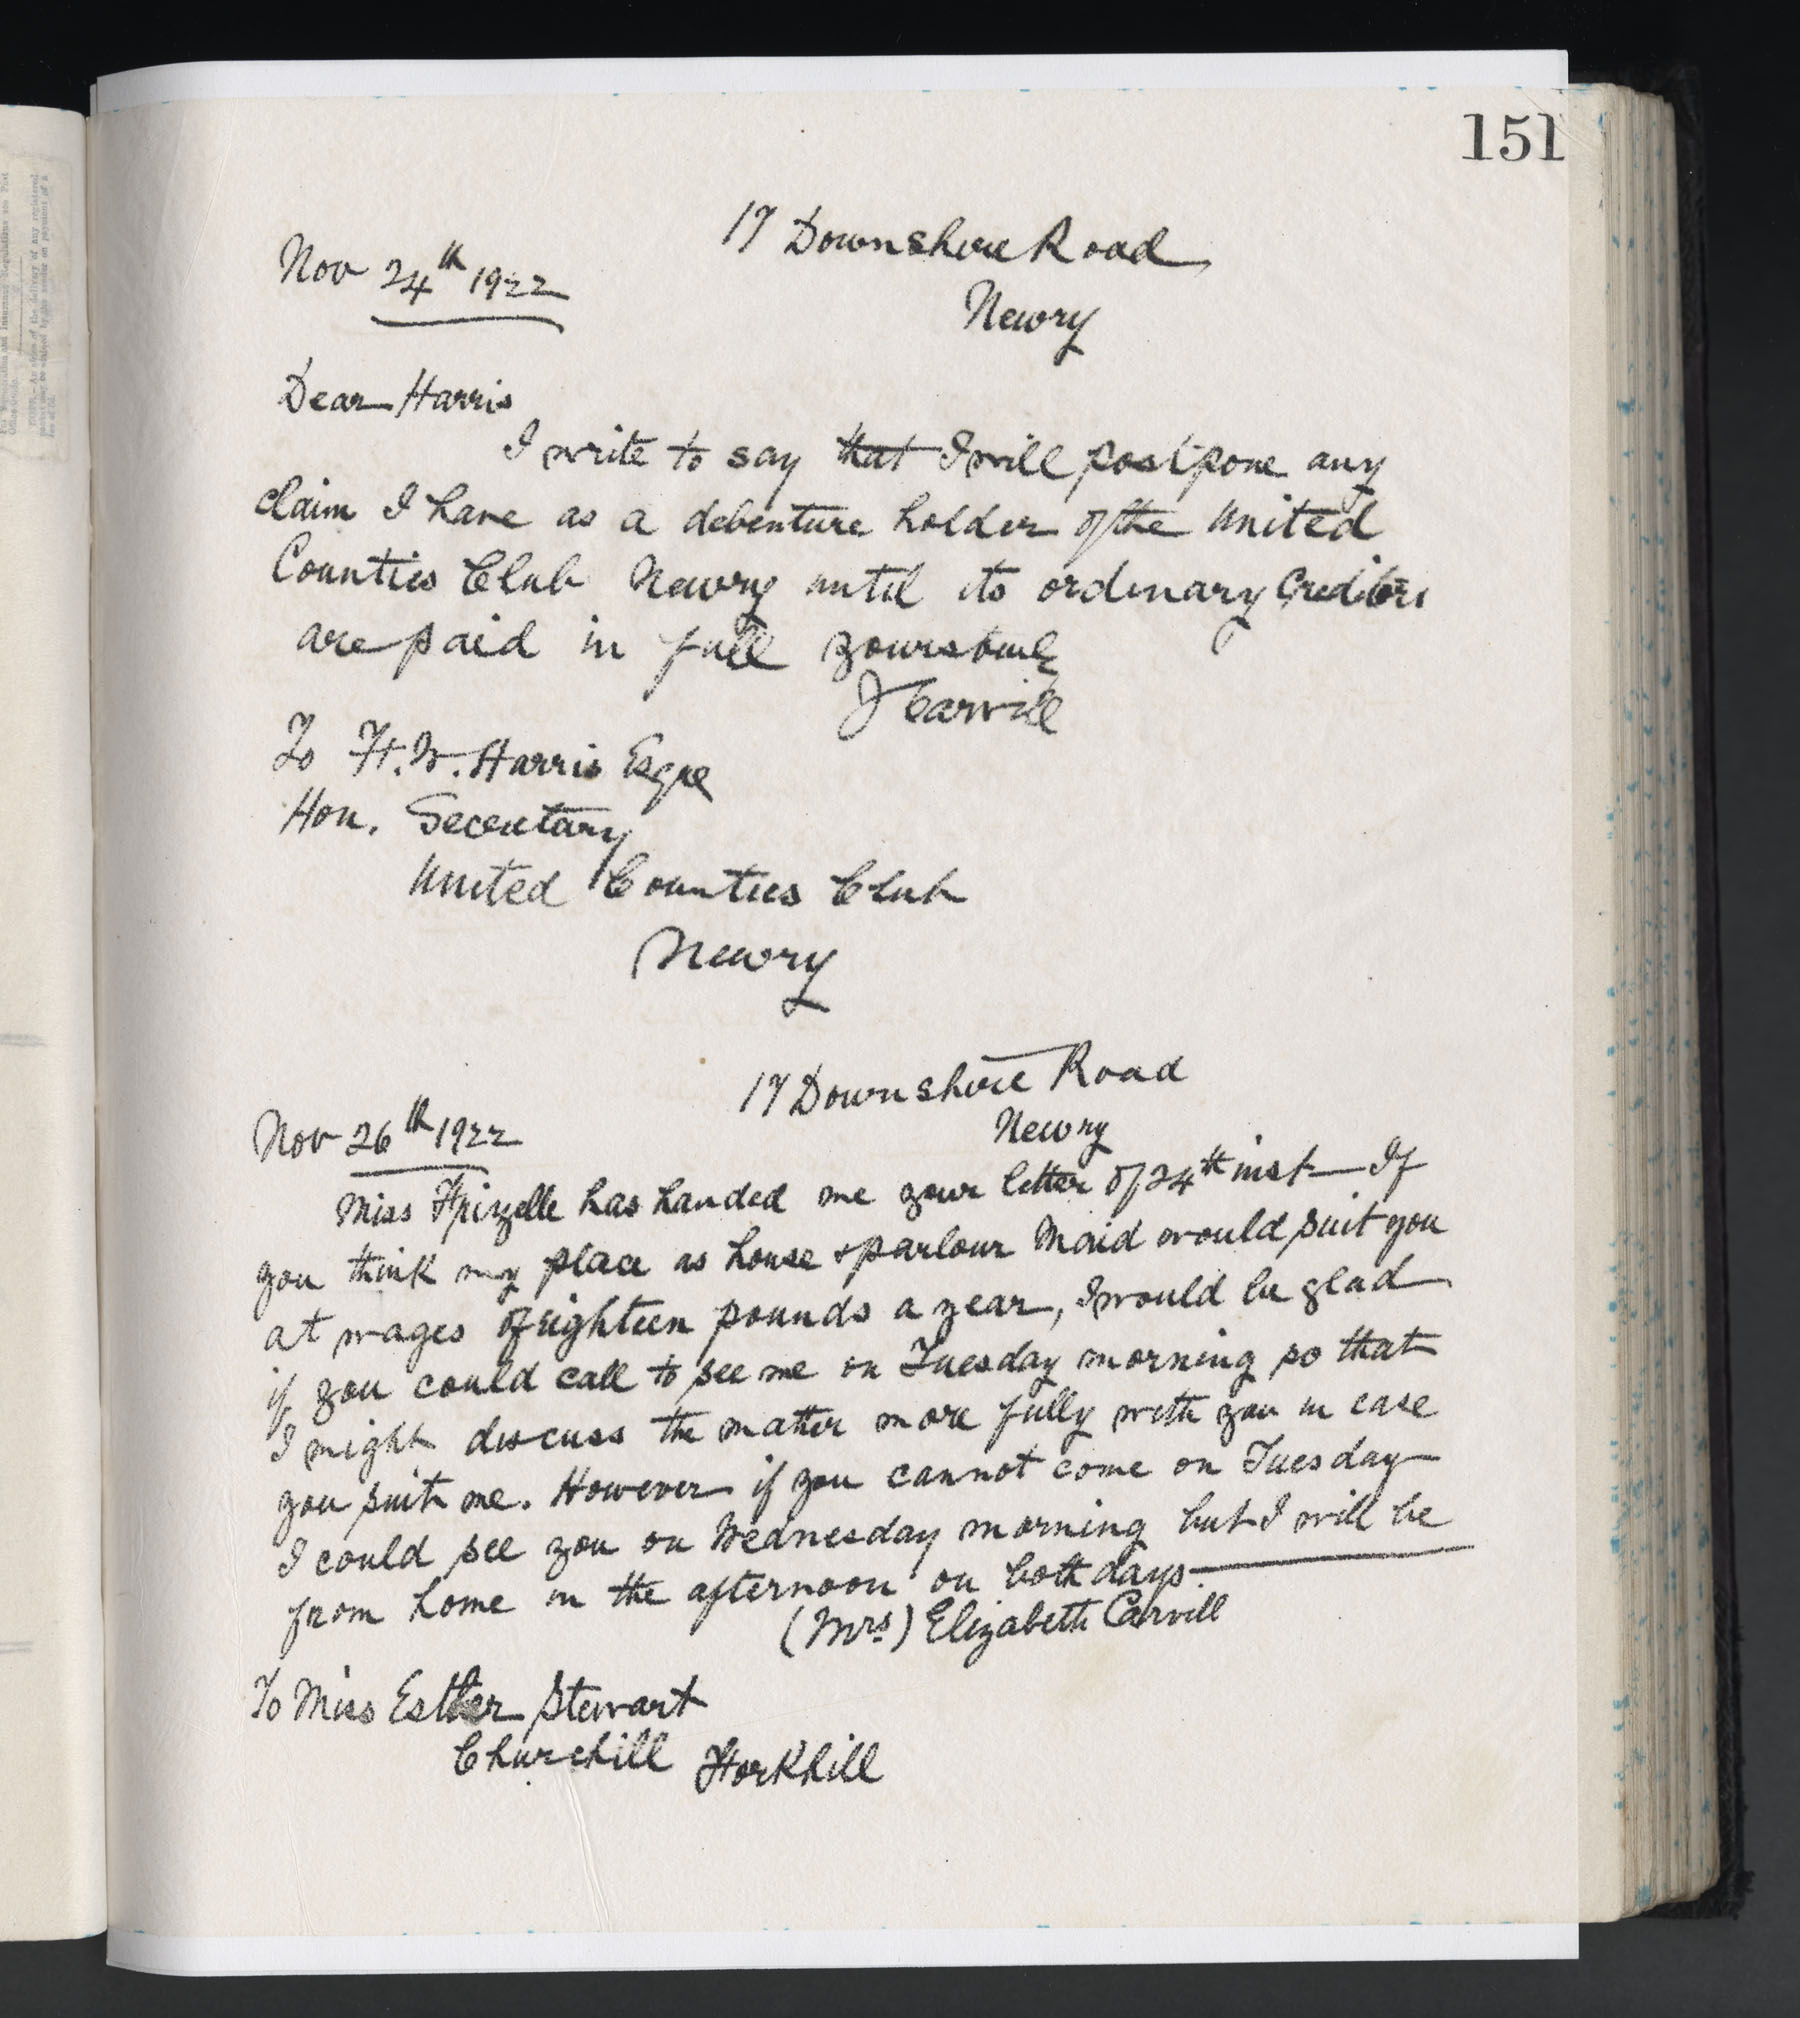 151
17 Downshire Road
Nov 24th 1922
Newry
Dear Harris
I write to say that I will postpone any
claim I have as a debenture holder of the United
Counties Club Newry until its ordinary Creditors
are paid in full yours truly
J Carvill
To H. W. Harris Esqre
Hon. Secretary
United Counties Club
Newry
17 Downshire Road
Nov 26th 1922
Newry
Miss has handed me your letter of 24th inst — If
you think my place as house & parlour Maid would suit you
at wages of eighteen pounds a year, I would be glad
if you could call to see me on Tuesday morning so that
I might discuss the matter more fully with you in case
you suit me. However if you cannot come on Tuesday
I could see you on Wednesday morning but I will be
from home in the afternoon on both days —
(Mrs) Elizabeth Carvill
To Miss Esther Stewart
Churchill Forkhill